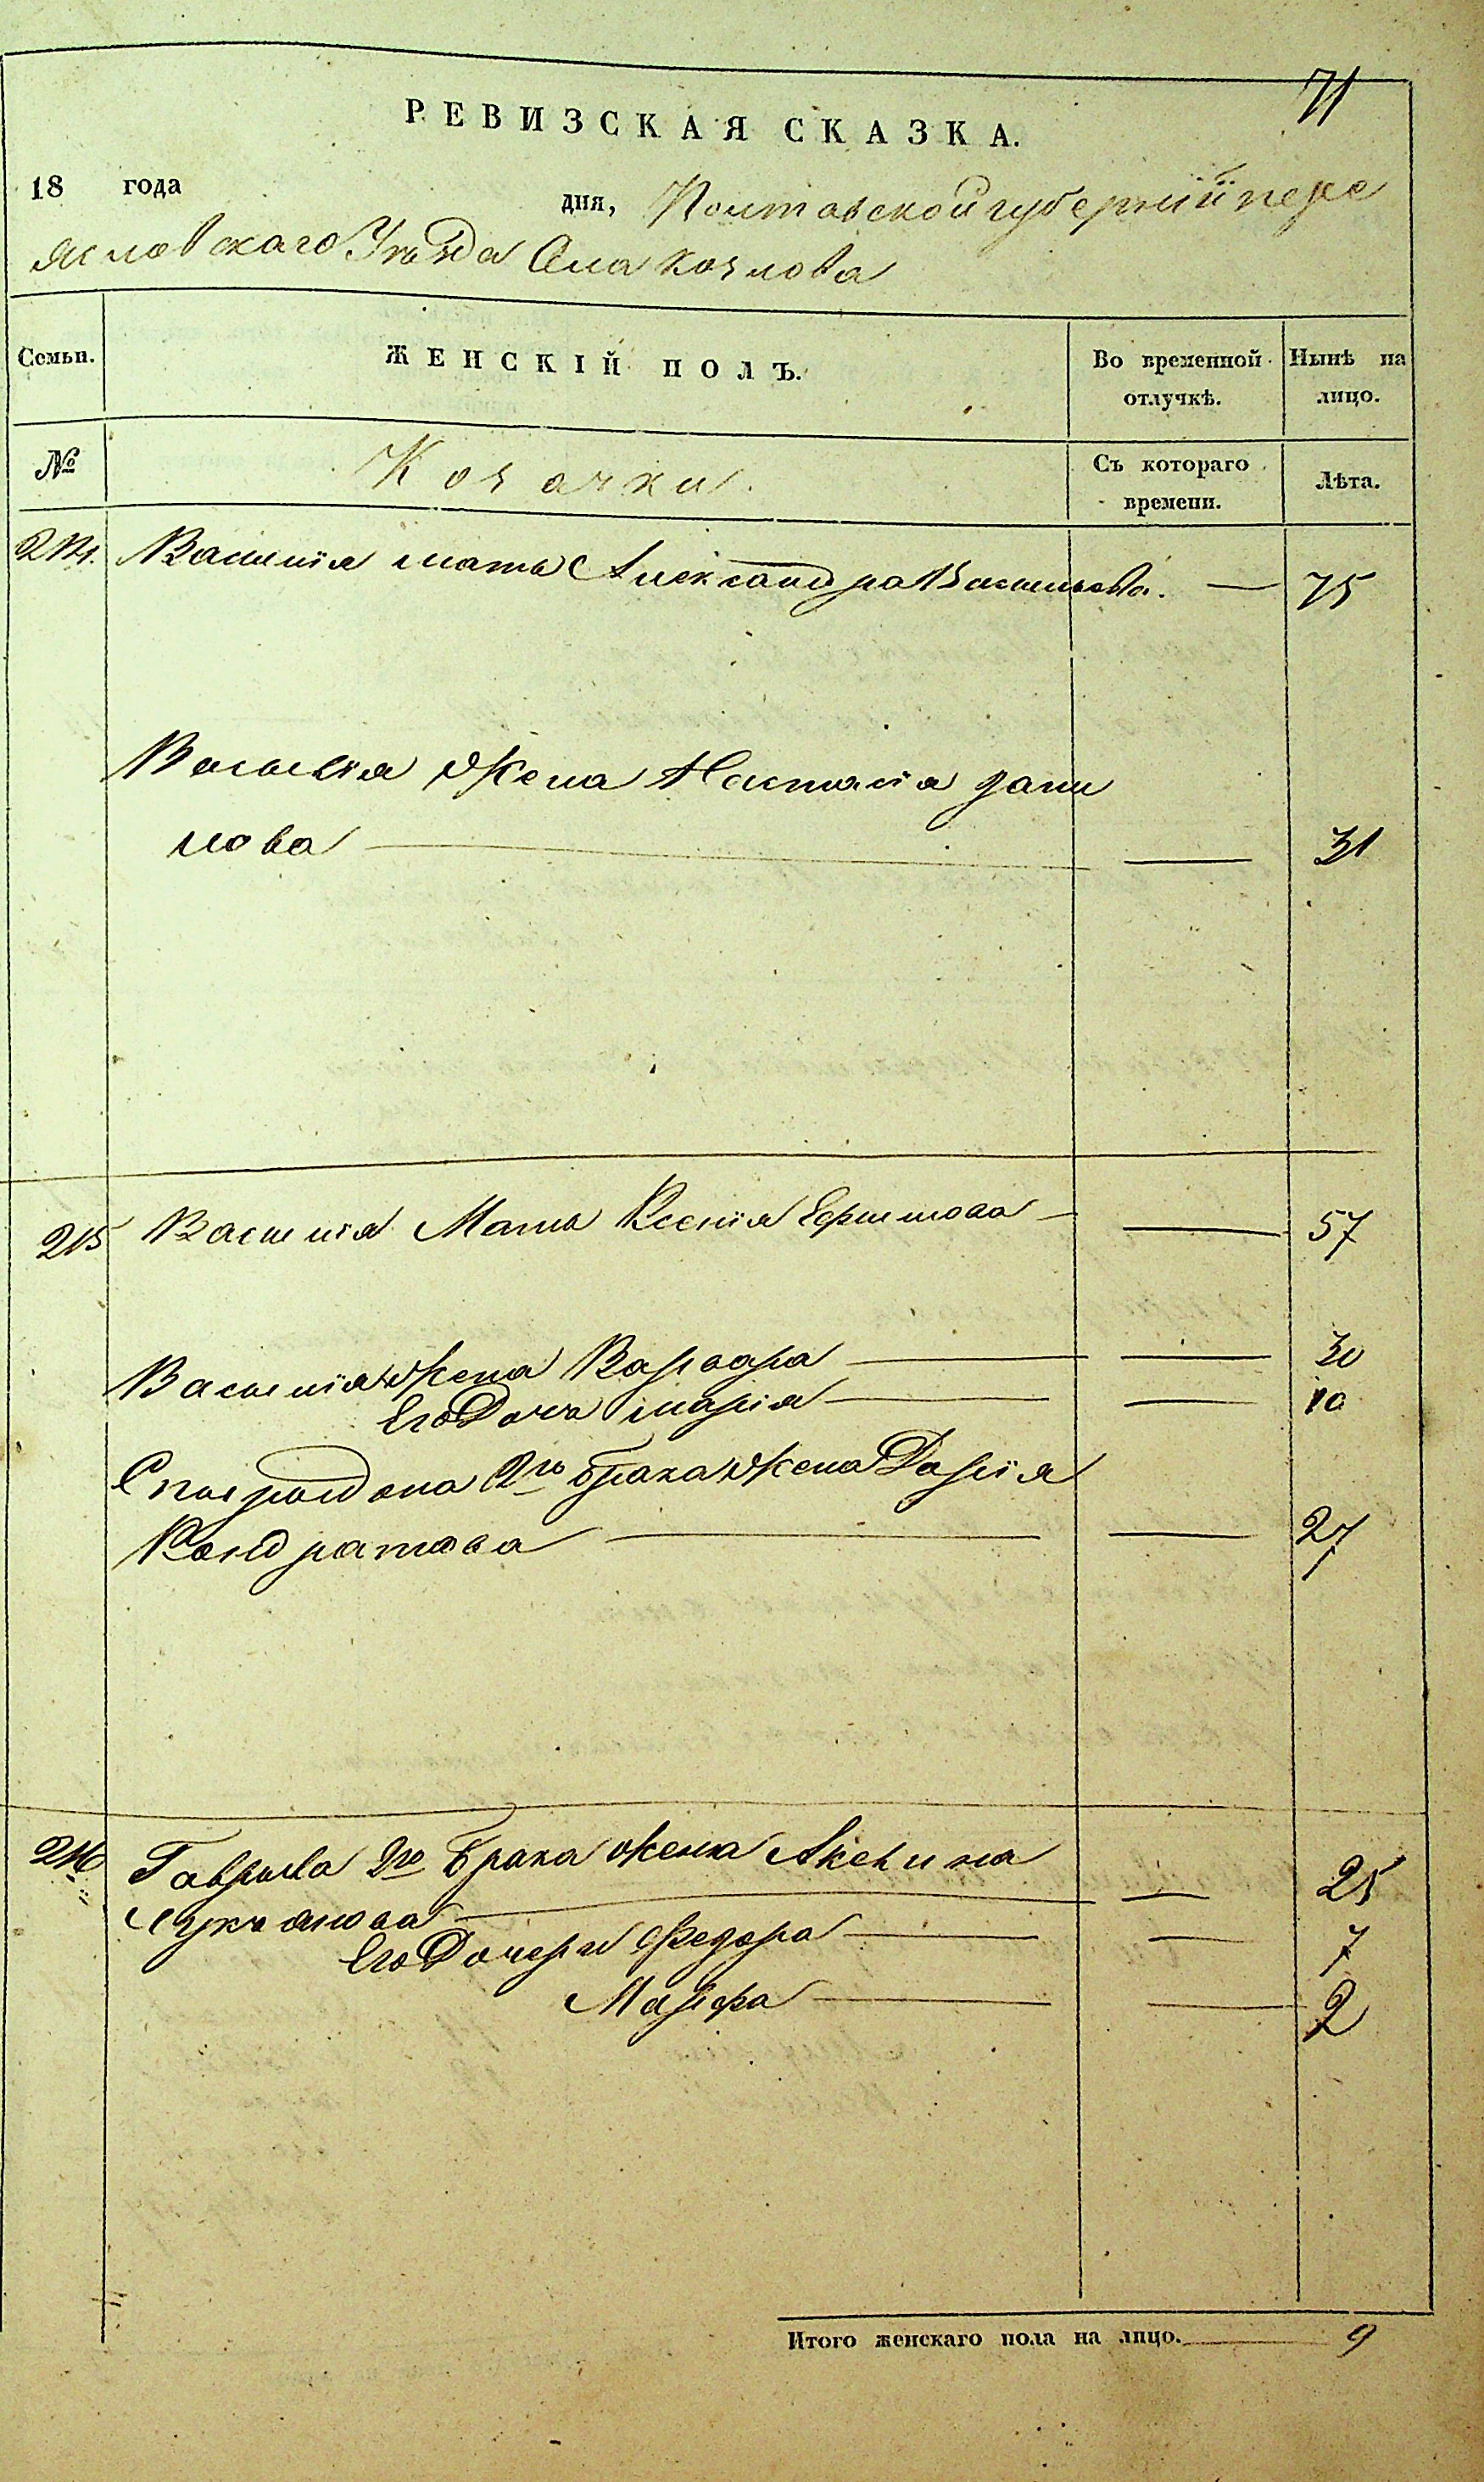 71
РЕВИЗСКАЯ СКАЗКА.
18 года дня, Полтавской губернїй пере
яславскаго Уѣзда Села козлова
Семьи. ЖЕНСКІЙ ПОЛЪ. Во временной отлучкѣ. Нынѣ на лицо.
№ Козачки. Съ котораго времени. Лѣта.
214. Василїя мать Александра Васильева. — 75
Василїя жена Настасїя дани
лова — 31
215 Василїя Мать Ксенїя Ефимова — 57
Василїя жена Варвара — 30
Его Дочь марїя — 10
Спиридона 2го брака жена Дарїя
Кондратова — 27
216 Гаврила 2го брака жена Акелина
Лукъянова — 25
Его Дочери Федора — 7
Марфа — 2
Итого женскаго пола на лицо. — 9